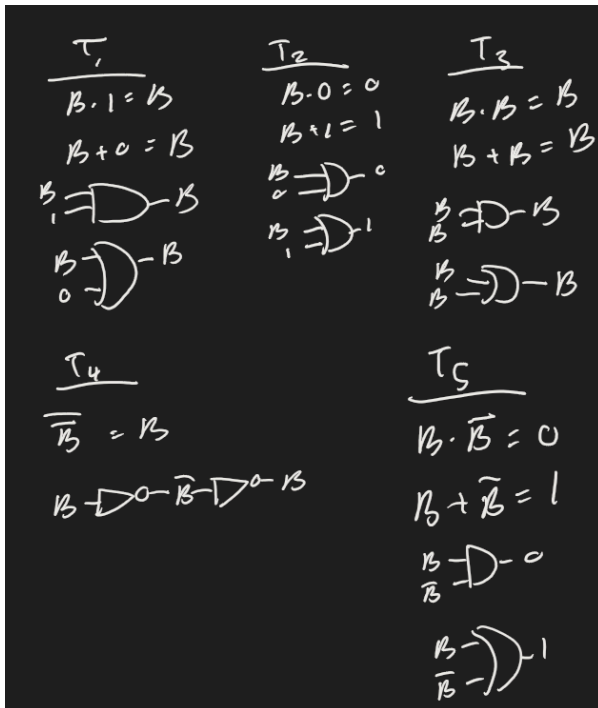 T₁
B · 1 = B
B + 0 = B
B
1
B
B
0
B
T₂
B · 0 = 0
B + 1 = 1
B
0
0
B
1
1
T₃
B · B = B
B + B = B
B
B
B
B
B
B
T₄
B̿ = B
B
B̅
B
T₅
B · B̅ = 0
B + B̅ = 1
B
B̅
0
B
B̅
1